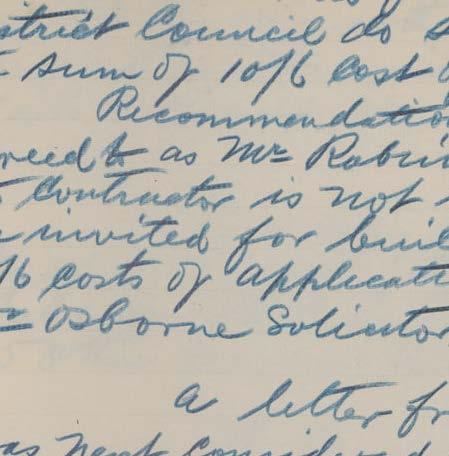 strict Council do
sum of 10/6 cost
Recommendation
reed to as Mr Robin
Contractor is not
invited for buil
/6 costs of applicati
Osborne Solicitor
a letter fr
as next considered